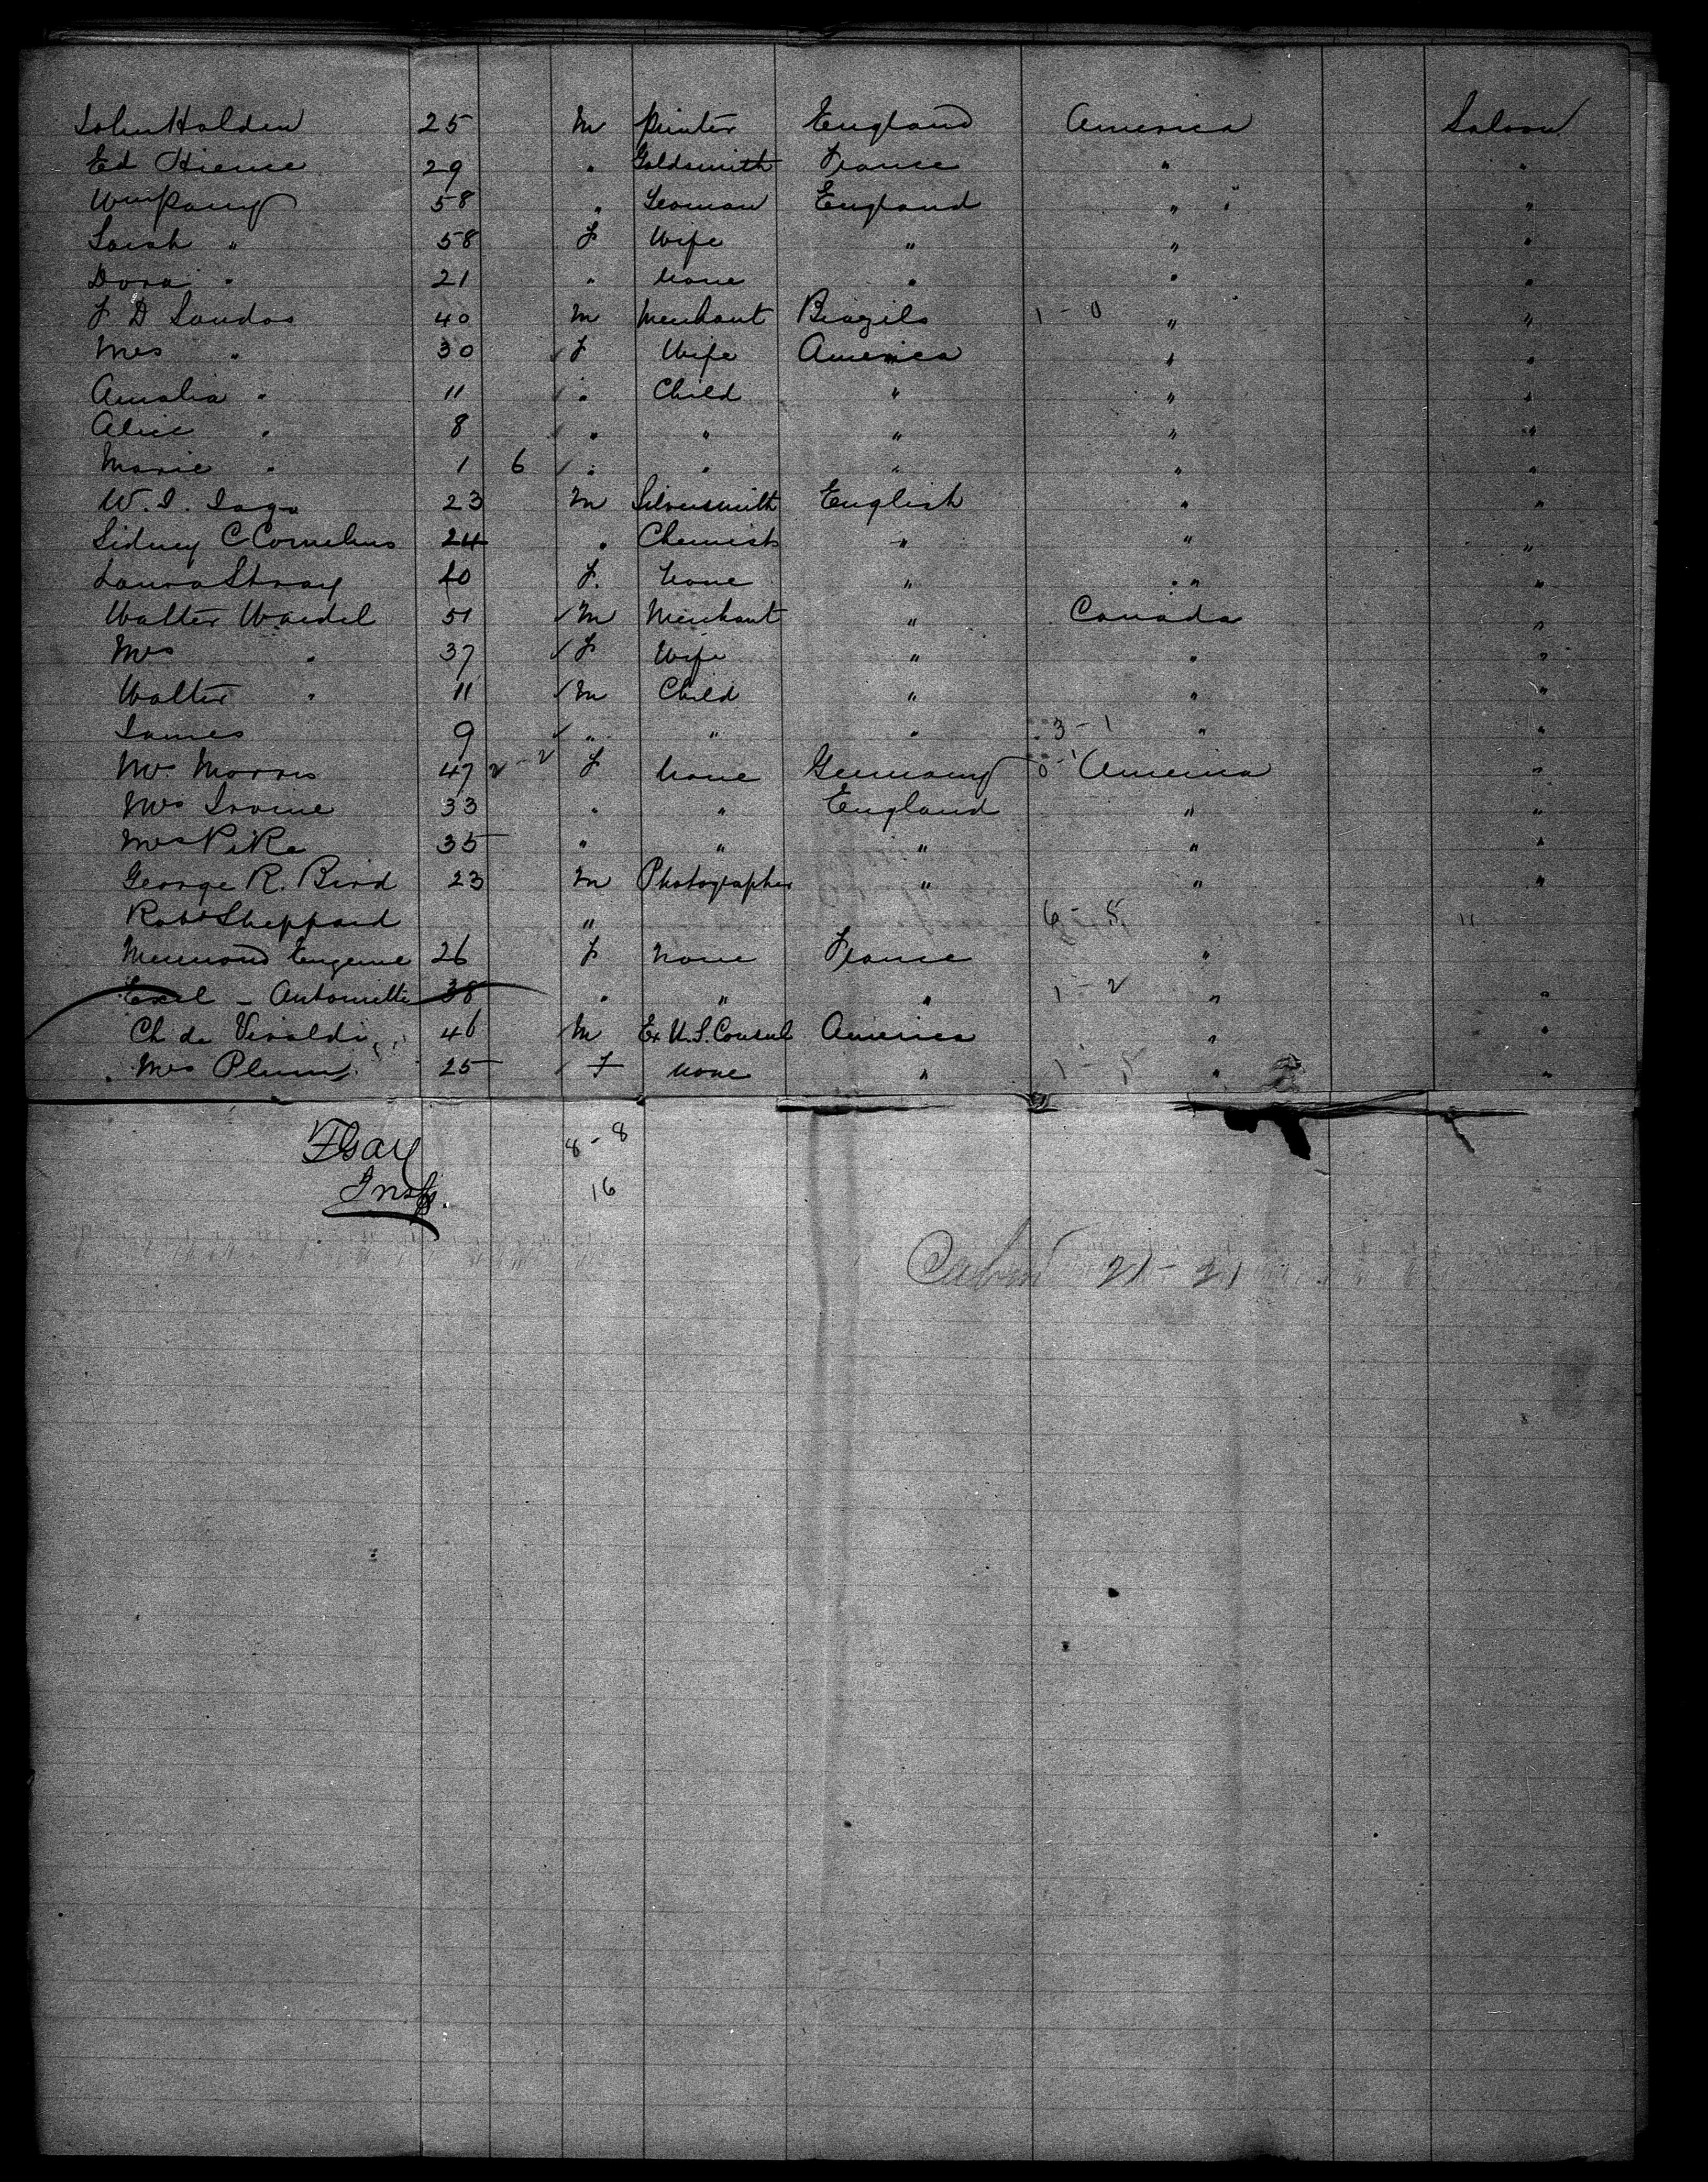 John Holden 25 M Printer England America Saloon
Ed Hience 29 " Goldsmith France " "
Wm Parry 58 " Yeoman England " "
Sarah " 58 F Wife " " "
Dora " 21 " None " " "
J D Sandos 40 M Merchant Brazils 1 - 0 " "
Mrs " 30 F Wife America " "
Amalia " 11 " Child " " "
Alice " 8 " " " " "
Marie " 1 6 " " " " "
W. I. 23 M Silversmith English " "
Sidney C Cornelius 24 " Chemist " " "
Laura Stray 40 F. None " " "
Walter Wardel 51 M Merchant " Canada "
Mrs " 37 F Wife " " "
Walter " 11 M Child " " "
James 9 " " " 3 - 1 " "
Mrs Morris 47 2 - 2 F None Germany 0 - 1 America "
Mrs Irvine 33 " " England " "
Mrs Pike 35 " " " " "
George R. Bird 23 M Photographer " " "
Robt Sheppard " 6 - 5 "
Mermond Eugenie 26 F None France "
Excel - Antoinette 38 " " " 1 - 2 " "
Ch de Vivaldi 46 M Ex U.S. Consul America " "
Mrs Plum 25 F None " 1 - 5 " "
8 - 8
Insp. 16
Cabin 21 - 21